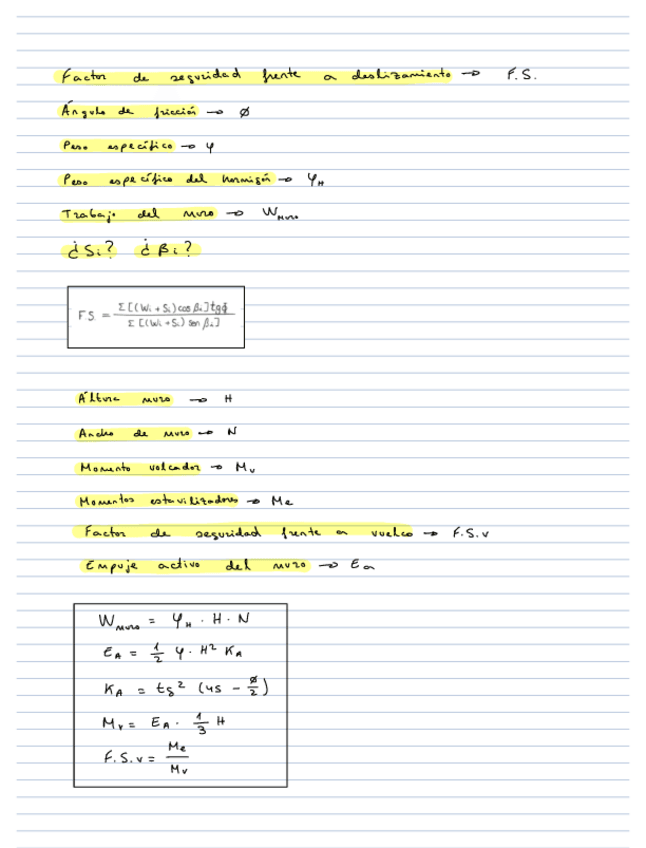 Factor de seguridad frente a deslizamiento → F.S.
Ángulo de fricción → ø
Peso específico → γ
Peso específico del hormigón → γH
Trabajo del muro → WMuro
¿Si? ¿βi?
F.S. = Σ[(Wi + Si) cos βi] tgϕ / Σ[(Wi + Si) sen βi]
Áltura muro → H
Ancho de muro → N
Momento volcador → Mv
Momentos estavilizadores → Me
Factor de seguridad frente a vuelco → F.S.v
Empuje activo del muro → Ea
WMuro = γH · H · N
EA = 1/2 γ · H² KA
KA = tg² (45 - ø/2)
Mv = EA · 1/3 H
F.S.v = Me/Mv